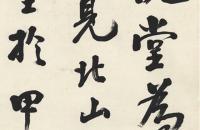 堂為
見北山
至於甲